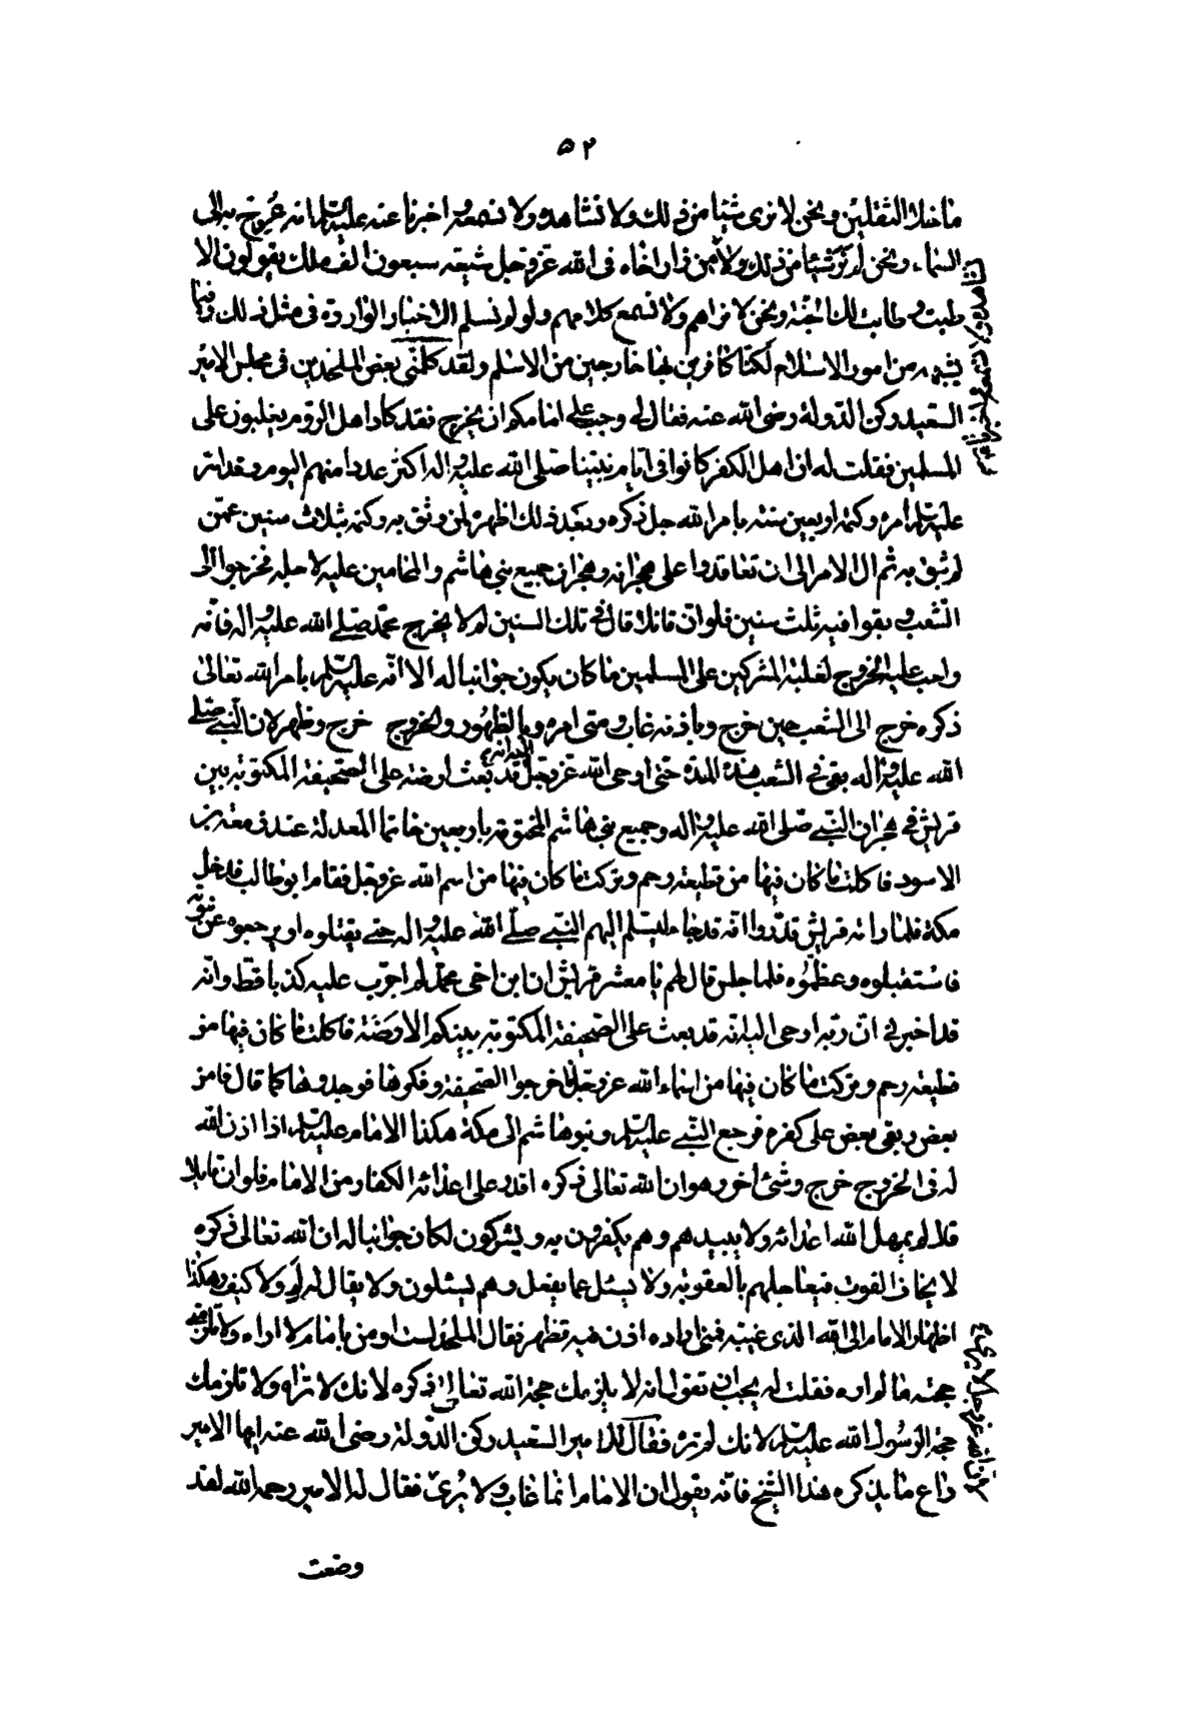 ٥٢
ما خلا الثقلين ونحن لا نرى شيئا من ذلك ولا نشاهده ولا نسمعه واخبرنا عنه عليه السلم انه عرج به الى
السماء ونحن لم نر شيئا من ذلك ولا من زار اخاه فى الله عز وجل شيعه سبعون الف ملك يقولون الا
طبت وطابت لك الجنة ونحن لا نراهم ولا نسمع كلامهم ولو لم نسلم الاخبار الواردة فى مثل ذلك وفيما
يشبهه من امور الاسلام لكنا كافرين بها خارجين من الاسلم ولقد كلمنى بعض الملحدين فى مجلس الامير
السعيد ركن الدولة رضى الله عنه فقال لى وجب على امامكم ان يخرج فقد كاد اهل الروم يغلبون على
المسلمين فقلت له ان اهل الكفر كانوا فى ايام نبينا صلى الله عليه واله اكثر عددا منهم اليوم وقد اسر
عليه السلم امره وكتمه اربعين سنة بامر الله جل ذكره وبعد ذلك اظهره لمن وثق به وكتمه ثلاث سنين عمن
لم يثق به ثم ال الامر الى ان تعاقدوا على هجرانه وهجران جميع بنى هاشم والمحامين عليه لاجله فخرجوا الى
الشعب وبقوا فيه ثلث سنين فلو ان قائلا قال فى تلك السنين لم لا يخرج محمد صلى الله عليه واله فانه
واجب عليه الخروج لغلبة المشركين على المسلمين ما كان يكون جوابنا له الا انه عليه السلم بامر الله تعالى
ذكره خرج الى الشعب حين خرج وباذنه غاب ومتى امره بالظهور والخروج خرج وظهر لان النبى صلى
الله عليه واله بقى فى الشعب هذه المدة حتى اوحى الله عز وجل اليه انه قد بعث ارضة على الصحيفة المكتوبة بين
قريش فى هجران النبى صلى الله عليه واله وجميع بنى هاشم المختومة باربعين خاتما المعدلة عند زمعة بن
الاسود فاكلت ما كان فيها من قطيعة رحم وتركت ما كان فيها من اسم الله عز وجل فقام ابو طالب فدخل
مكة فلما راته قريش قدروا انه قد جاء ليسلم اليهم النبى صلى الله عليه واله حتى يقتلوه او يرجعوه عن نبوته
فاستقبلوه وعظموه فلما جلس قال لهم يا معشر قريش ان ابن اخى محمد لم اجرب عليه كذبا قط وانه
قد اخبرنى ان ربه اوحى اليه انه قد بعث على الصحيفة المكتوبة بينكم الارضة فاكلت ما كان فيها من
قطيعة رحم وتركت ما كان فيها من اسماء الله عز وجل فاخرجوا الصحيفة وفكوها فوجدوها كما قال فامن
بعض وبقى بعض على كفره فرجع النبى عليه السلم وبنو هاشم الى مكة هكذا الامام عليه السلم اذا اذن الله
له فى الخروج خرج وشئ اخر وهو ان الله تعالى ذكره اقدر على اعدائه الكفار من الامام فلو ان قايلا
قال لم يمهل الله اعدائه ولا يبيدهم وهم يكفرون به ويشركون لكان جوابنا له ان الله تعالى ذكره
لا يخاف الفوت فيعاجلهم بالعقوبة ولا يسئل عما يفعل وهم يسئلون ولا يقال له لم ولا كيف وهكذا
اظهار الامام الى الله الذى غيبه فمتى اراده اذن فيه فظهر فقال الملحد لست اومن بامام لا اراه ولا تلزمنى
حجته ما لم اره فقلت له يجب ان تقول انه لا يلزمك حجة الله تعالى ذكره لانك لا تراه ولا تلزمك
حجة الرسول الله عليه السلم لانك لم تره فقال للامير السعيد ركن الدولة رضى الله عنه ايها الامير
راع ما يذكره هذا الشيخ فانه يقول ان الامام انما غاب ولا يرى فقال له الامير رحمه الله لقد
وضعت